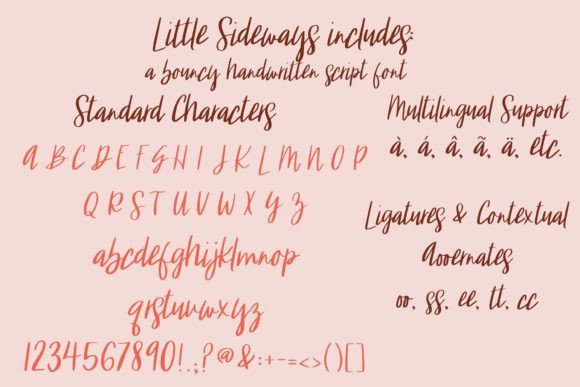 Little Sideways includes:
a bouncy handwritten script font
Standard Characters
A B C D E F G H I J K L M N O P
Q R S T U V W X Y Z
abcdefghijklmnop
qrstuvwxyz
1234567890!.,;?@&:+-=<>()[]
Multilingual Support
à, á, â, ã, ä, etc.
Ligatures & Contextual
Aooernates
oo, ss, ee, tt, cc